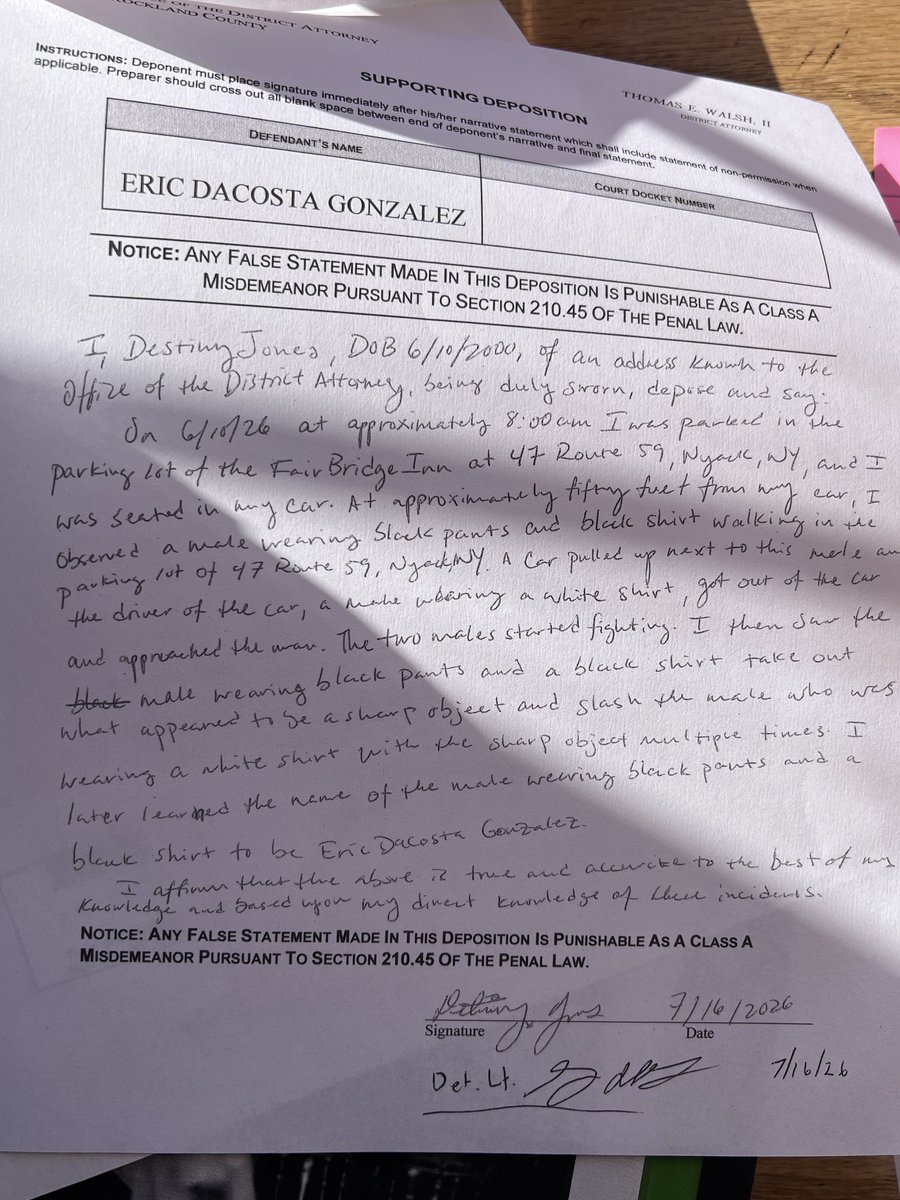 OF THE DISTRICT ATTORNEY
ROCKLAND COUNTY
THOMAS E. WALSH, II
DISTRICT ATTORNEY
SUPPORTING DEPOSITION
INSTRUCTIONS: Deponent must place signature immediately after his/her narrative statement which shall include statement of non-permission when
applicable. Preparer should cross out all blank space between end of deponent's narrative and final statement.
DEFENDANT'S NAME
COURT DOCKET NUMBER
ERIC DACOSTA GONZALEZ
NOTICE: ANY FALSE STATEMENT MADE IN THIS DEPOSITION IS PUNISHABLE AS A CLASS A
MISDEMEANOR PURSUANT TO SECTION 210.45 OF THE PENAL LAW.
I, Destiny Jones, DOB 6/10/2000, of an address known to the
Office of the District Attorney, being duly sworn, depose and say:
On 6/10/26 at approximately 8:00am I was parked in the
parking lot of the FairBridge Inn at 47 Route 59, Nyack, NY, and I
was seated in my car. At approximately fifty feet from my car, I
observed a male wearing black pants and black shirt walking in the
parking lot of 47 Route 59, Nyack, NY. A car pulled up next to this male an
the driver of the car, a male wearing a white shirt, got out of the car
and approached the man. The two males started fighting. I then saw the
black male wearing black pants and a black shirt take out
what appeared to be a sharp object and slash the male who was
wearing a white shirt with the sharp object multiple times. I
later learned the name of the male wearing black pants and a
black shirt to be Eric Dacosta Gonzalez.
I affirm that the above is true and accurate to the best of my
knowledge and based upon my direct knowledge of these incidents.
NOTICE: ANY FALSE STATEMENT MADE IN THIS DEPOSITION IS PUNISHABLE AS A CLASS A
MISDEMEANOR PURSUANT TO SECTION 210.45 OF THE PENAL LAW.
7/16/2026
Signature
Date
Det. Lt.
7/16/26